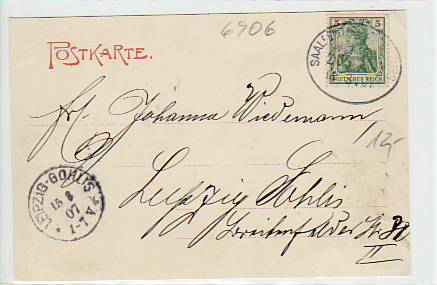 6906
POSTKARTE.
5 5
DEUTSCHES REICH
SAALF
Frl. Johanna Wiedemann
12,-
Leipzig Gohlis
Breitenfelder Str. 32
II
LEIPZIG-GOHLIS
15 8
07
1-7 V.